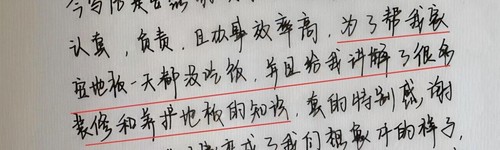 认真，负责，且办事放率高，为了帮我家
安地板一天都没吃饭，并且给我讲解了很多
装修和养护地板的知识，真的特别感谢
变成了我们想象中的样子，